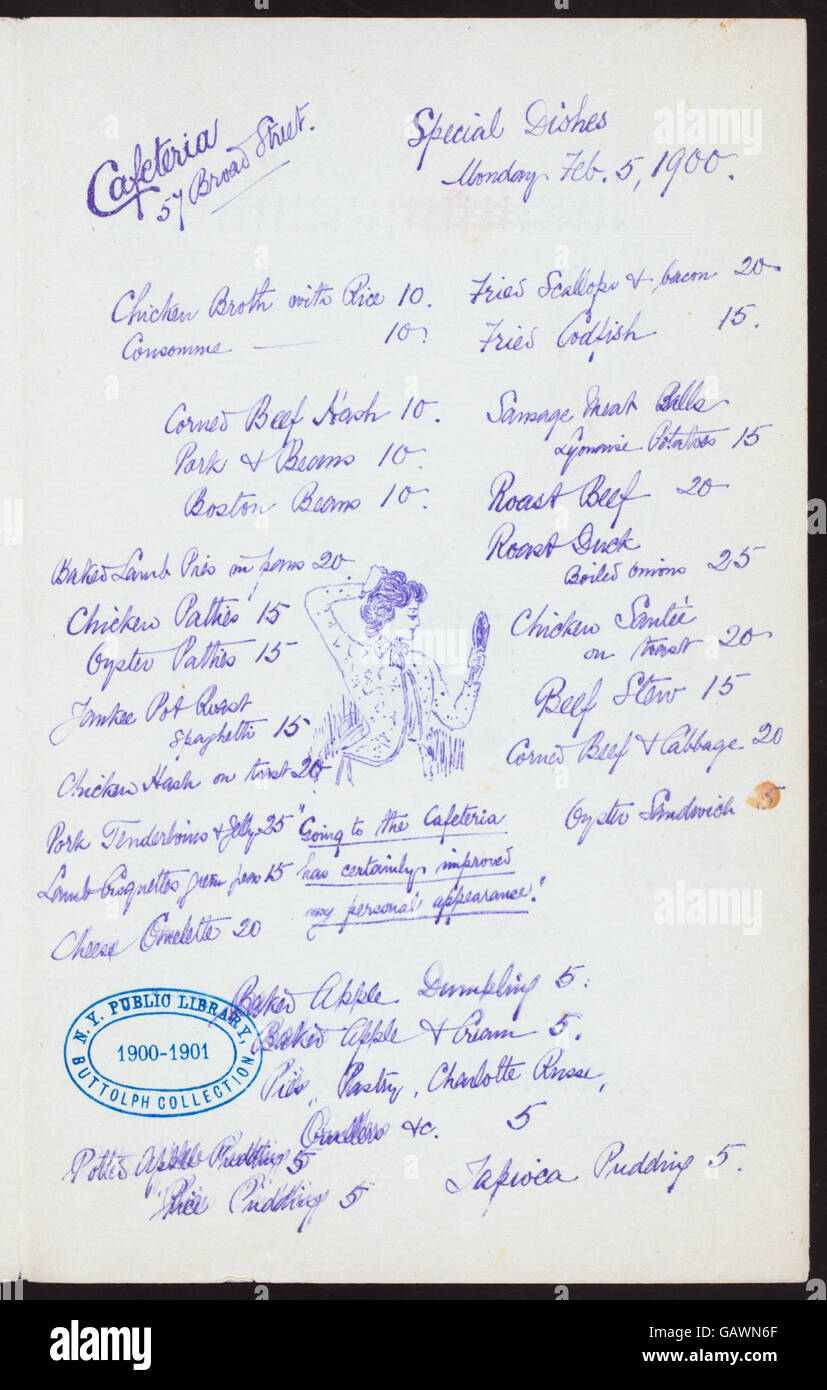 Cafeteria
57 Broad Street.
Special Dishes
Monday Feb. 5, 1900.
Chicken Broth with Rice 10.
Consomme — 10.
Corned Beef Hash 10.
Pork & Beans 10.
Boston Beans 10.
Baked Lamb Pies in pans 20
Chicken Patties 15
Oyster Patties 15
Yankee Pot Roast
Spaghetti 15
Chicken Hash on toast 20
Pork Tenderloins & Jelly 25
Lamb Croquettes green peas 15
Cheese Omelette 20
Fried Scallops & bacon 20
Fried Codfish 15.
Sausage Meat Balls
Lyonaise Potatoes 15
Roast Beef 20
Roast Duck
Boiled Onions 25
Chicken Sauteé
on toast 20
Beef Stew 15
Corned Beef & Cabbage 20
Oyster Sandwich 5
"Going to the Cafeteria
has certainly improved
my personal appearance."
Baked Apple Dumpling 5.
Baked Apple & Cream 5.
Pies, Pastry, Charlotte Russe,
Crullers &c. 5
Potted Apple Pudding 5
Rice Pudding 5
Tapioca Pudding 5.
N.Y. PUBLIC LIBRARY,
1900-1901
BUTTOLPH COLLECTION
alamy
alamy
Image ID: GAWN6F
www.alamy.com